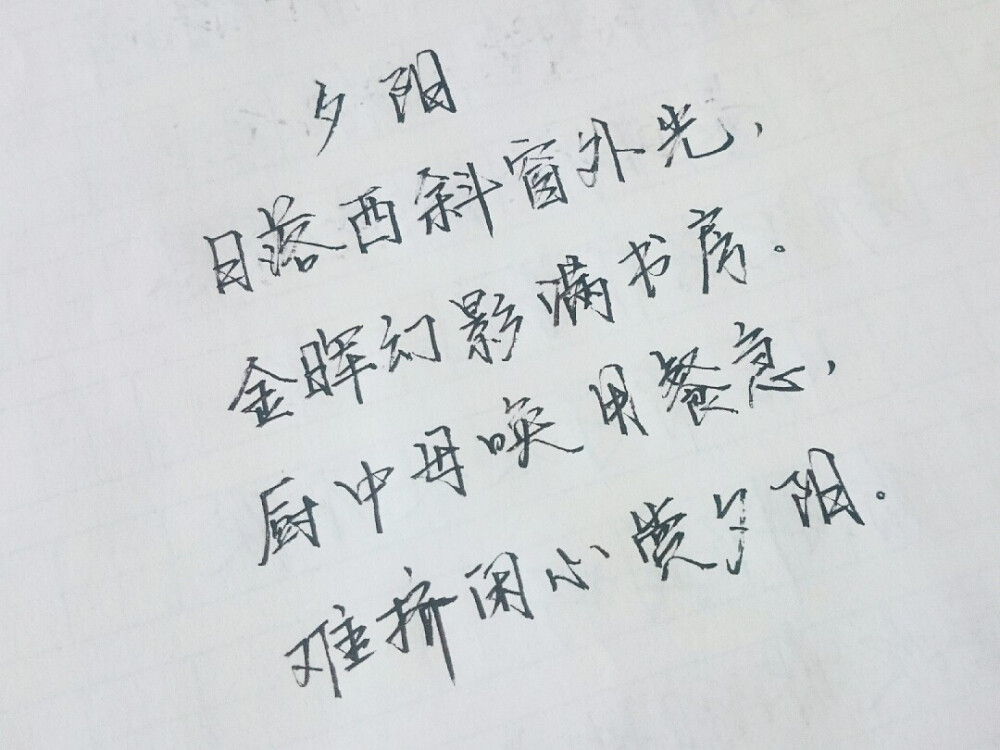 夕阳
日落西斜窗外光,
金晖幻影满书房.
厨中母唤用餐急,
难挤闲心赏夕阳.